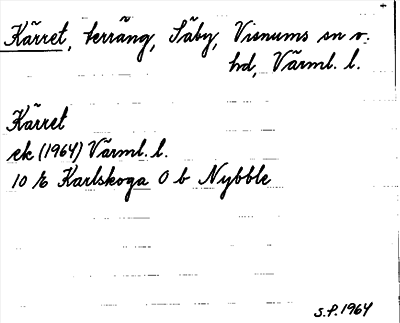 Kärret, terräng, Säby, Visnums sn o.
hd, Värml. l.
Kärret
ek (1964) Värml. l.
10 E Karlskoga 0 b Nybble
S.P. 1964